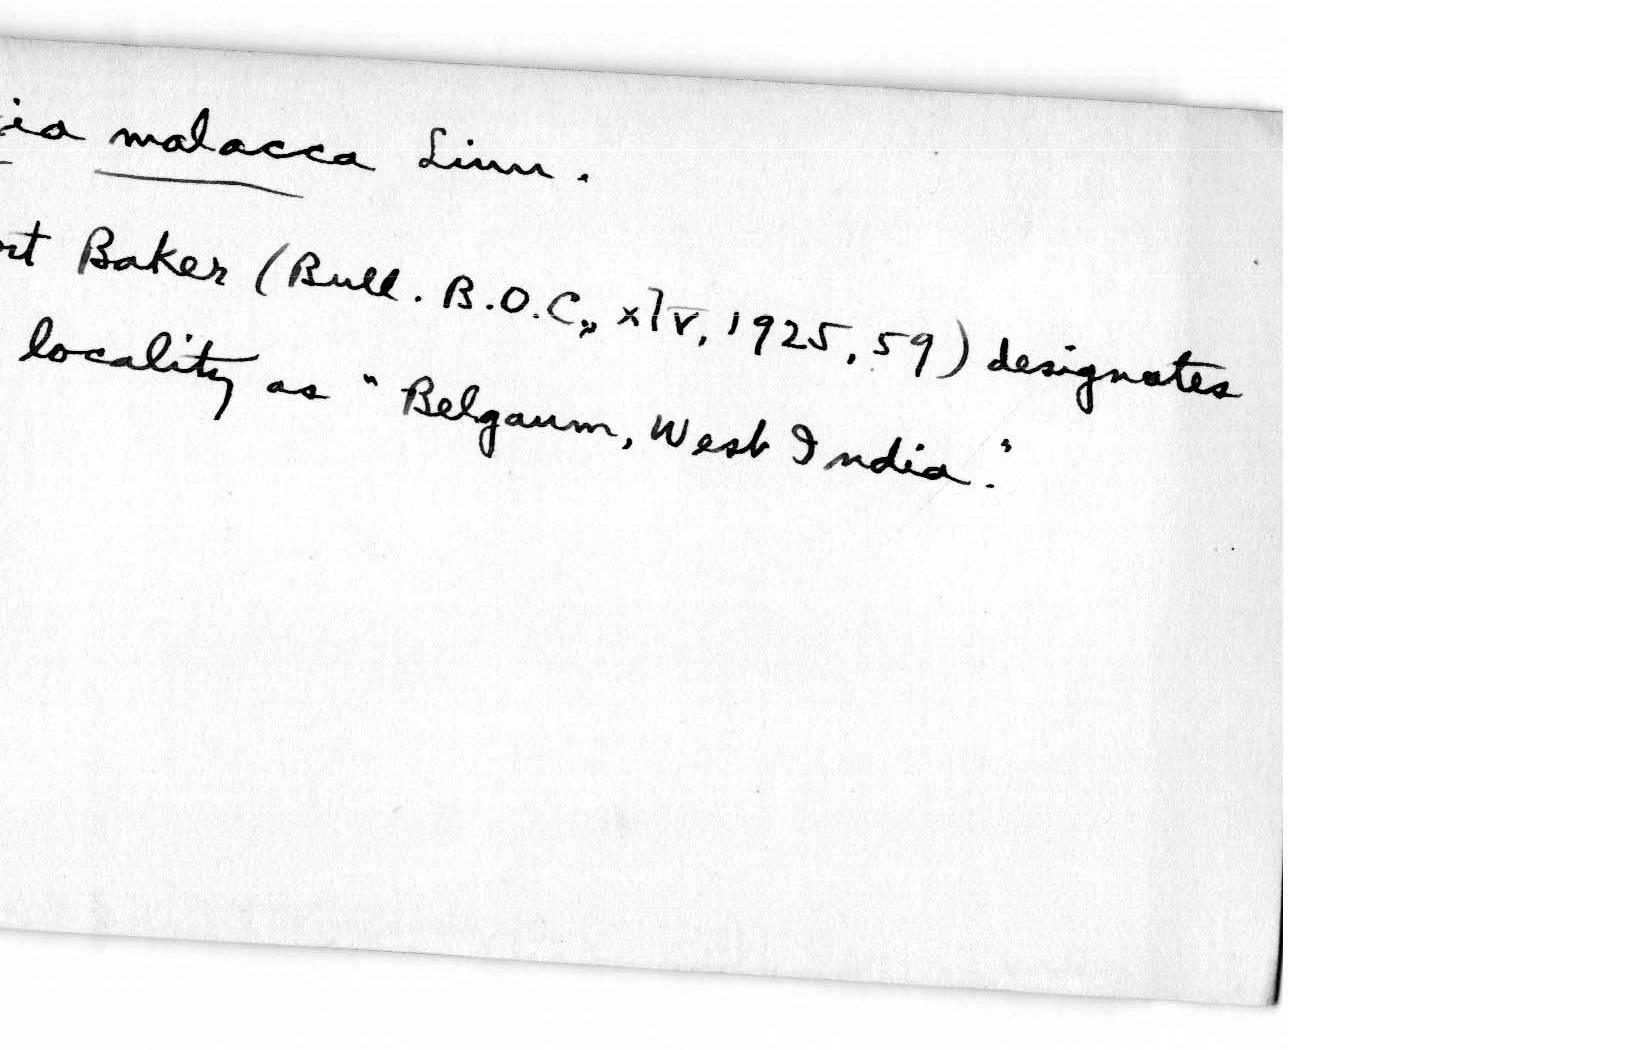 ia malacca Linn.
rt Baker (Bull. B.O.C., xlv, 1925, 59) designates
locality as "Belgaum, West India."